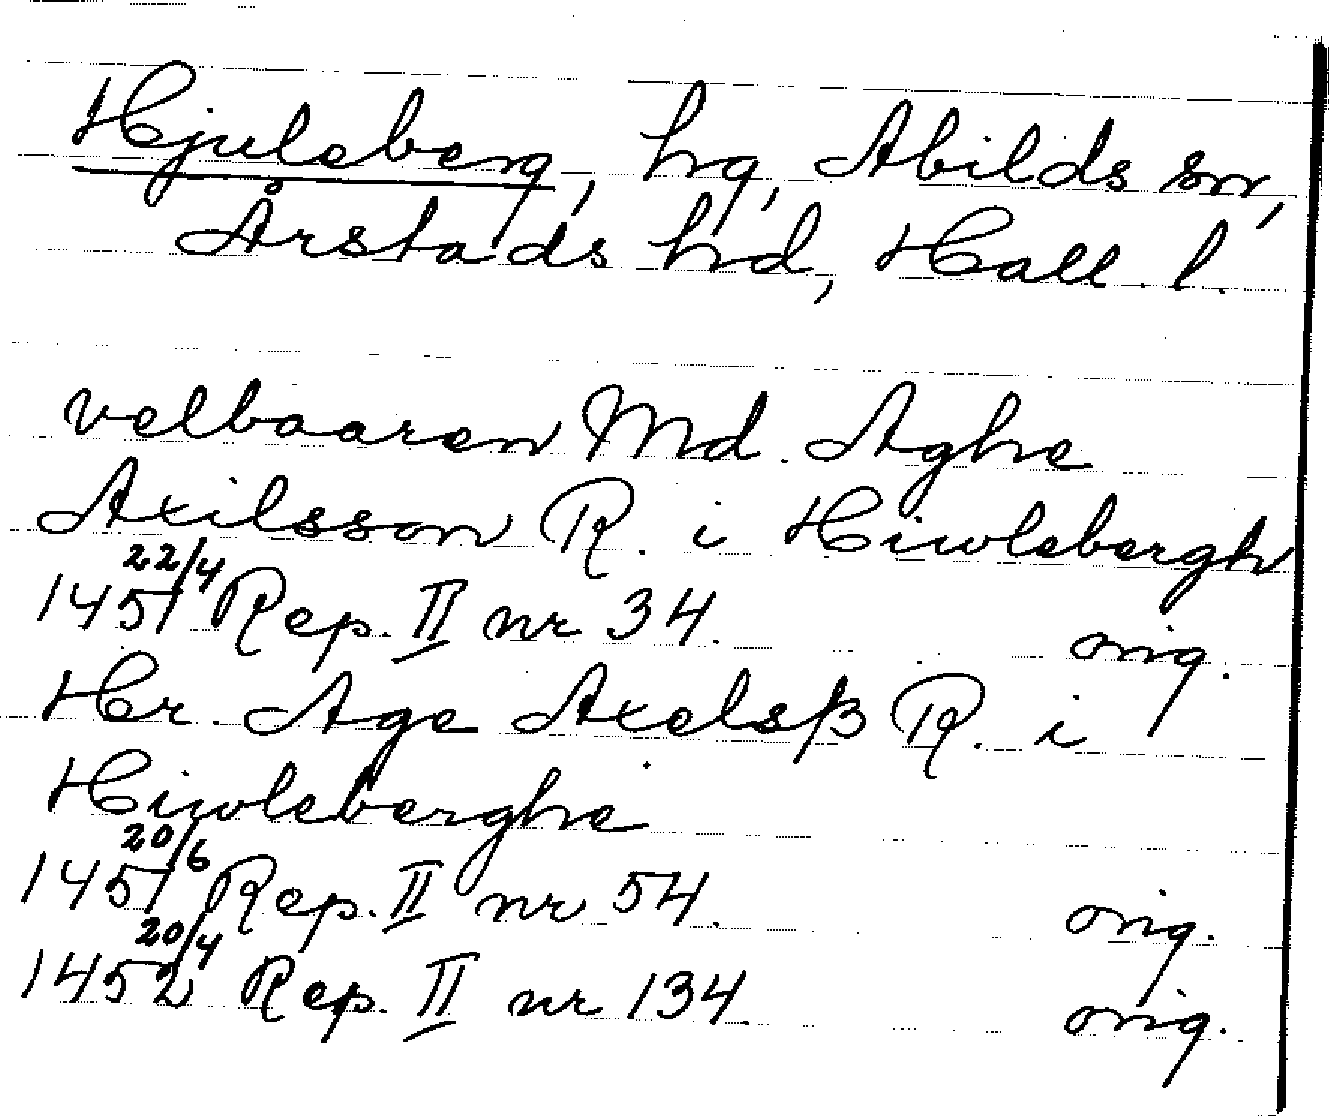 Hjuleberg, hrg, Abilds sn,
Årstads hrd, Hall. l.
velbaaren Md. Aghe
Axilsson R. i Hiwlebergh
1451 22/4 Rep. II nr 34. orig.
Hr. Age Axelsß R. i
Hiwleberghe
1451 20/6 Rep. II nr 54. orig.
1452 20/4 Rep. II nr 134 orig.